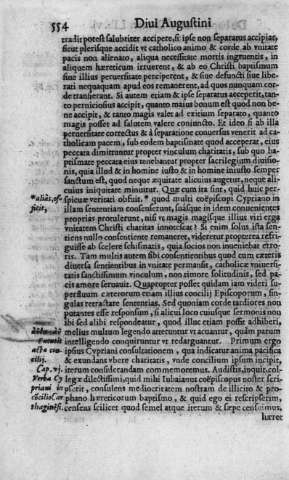 554 Diui Augustini
tradit potest salubriter accipere, si ipse non separatus accipiat,
sicut plerisque accidit vt catholico animo & corde ab vnitate
pacis non alienato, aliqua necessitate mortis ingruentis, in
aliquem hæreticum irruerent, & ab eo Christi baptismum
sine illius peruersitate perciperent, & siue defuncti siue libe-
rati nequaquam apud eos remanerent, ad quos nunquam cor-
de transierant. Si autem etiam & ipse separatus acceperit, tan-
to perniciosius accipit, quanto maius bonum est quod non be-
ne accipit, & tanto magis valet ad exitium separato, quanto
magis posset ad salutem valere coniuncto. Et ideo si ab illa
peruersitate correctus & à separatione conuersus venerit ad ca-
tholicam pacem, sub eodem baptismate quod acceperat, eius
peccata dimittuntur propter vinculum charitatis, sub quo ba-
ptismate peccata eius tenebantur propter sacrilegium diuisio-
nis, quia illud & in homine iusto & in homine iniusto semper
sanctum est, quod neque æquitate alicuius augetur, neque ali-
cuius iniquitate minuitur. Quæ cum ita sint, quid huic per-
*aliàs, of- spicuæ veritati obsunt, * quod multi coëpiscopi Cypriano in
ficit, illam sententiam consenserunt, suasque in idem conuenientes
proprias protulerunt, nisi vt magis magisque illius viri erga
vnitatem Christi charitas innotescat? Si enim solus ista sen-
tiens nullo consentiente remaneret, videretur propterea refri-
guisse ab scelere schismatis, quia socios non inueniebat erro-
ris. Tam multis autem sibi consentientibus quod cum cæteris
diuersa sentientibus in vnitate permansit, catholicæ vniuersi-
tatis sanctissimum vinculum, non timore solitudinis, sed pa-
cis amore seruauit. Quapropter posset quidam iam videri su-
perfluum cæterorum etiam illius concilij Episcoporum, sin-
gulas retractare sententias. Sed quoniam corde tardiores non
putantes esse responsum, si alicui loco cuiusque sermonis non
ibi sed alibi respondeatur, quod illuc etiam possit adhiberi,
melius multum legendo atteruntur vt acuantur, quàm parum
intelligendo conquiruntur vt redarguantur. Primum ergo
ipsius Cypriani consultationem, qua indicatur animą pacifica
& exundans vbere charitatis, vnde concilium ipsum incipit,
Cap. vi. iterum considerandam commemoremus. Audistis, inquit, col-
Verba Cy legæ dilectissimi, quid mihi Iubaianus coëpiscopus noster scri
priani in pserit, consulens mediocritatem nostram de illicito & pro-
cōcilio Car phano hæreticorum baptismo, & quid ego ei rescripserim,
thaginēsi. censens scilicet quod semel atque iterum & sæpe censuimus,
hæret